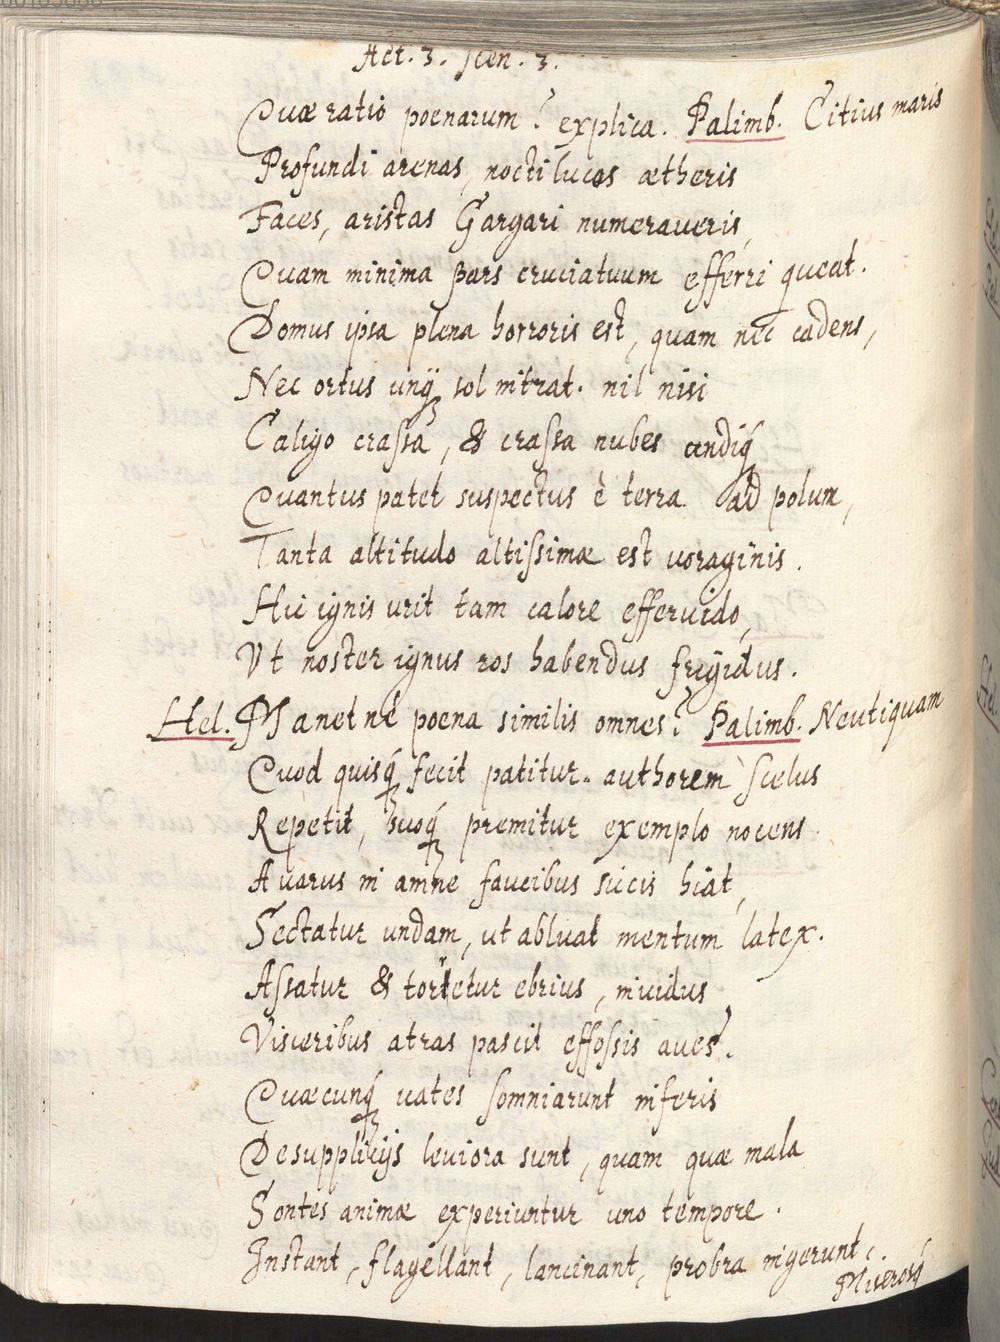 Act. 3. Scen. 3.
Quae ratio poenarum? explica. Palimb. Citius maris
Profundi arenas, noctilucas aetheris
Faces, aristas Gargari numeraueris,
Quam minima pars cruciatuum efferri queat.
Domus ipsa plena horroris est, quam nec cadens,
Nec ortus unq̃ sol intrat. nil nisi
Caligo crassa, & crassa nubes undiq́
Quantus patet suspectus è terra ad polum,
Tanta altitudo altissimae est uoraginis.
Hic ignis urit tam calore efferuido,
Vt noster ignis ros habendus frigidus.
Hel. Manet nè poena similis omnes? Palimb. Neutiquam
Quod quisq́ fecit patitur. authorem scelus
Repetit, suoq́ premitur exemplo nocens.
Auarus in amne faucibus siccis hiat,
Sectatur undam, ut abluat mentum latex.
Assatur & torretur ebrius, inuidus
Visceribus atras pascit effossis aues.
Quaecunq́ uates somniarunt inferis
De supplicijs leuiora sunt, quam quae mala
Sontes animae experiuntur uno tempore.
Instant, flagellant, lancinant, probra ingerunt,
Miserosq́